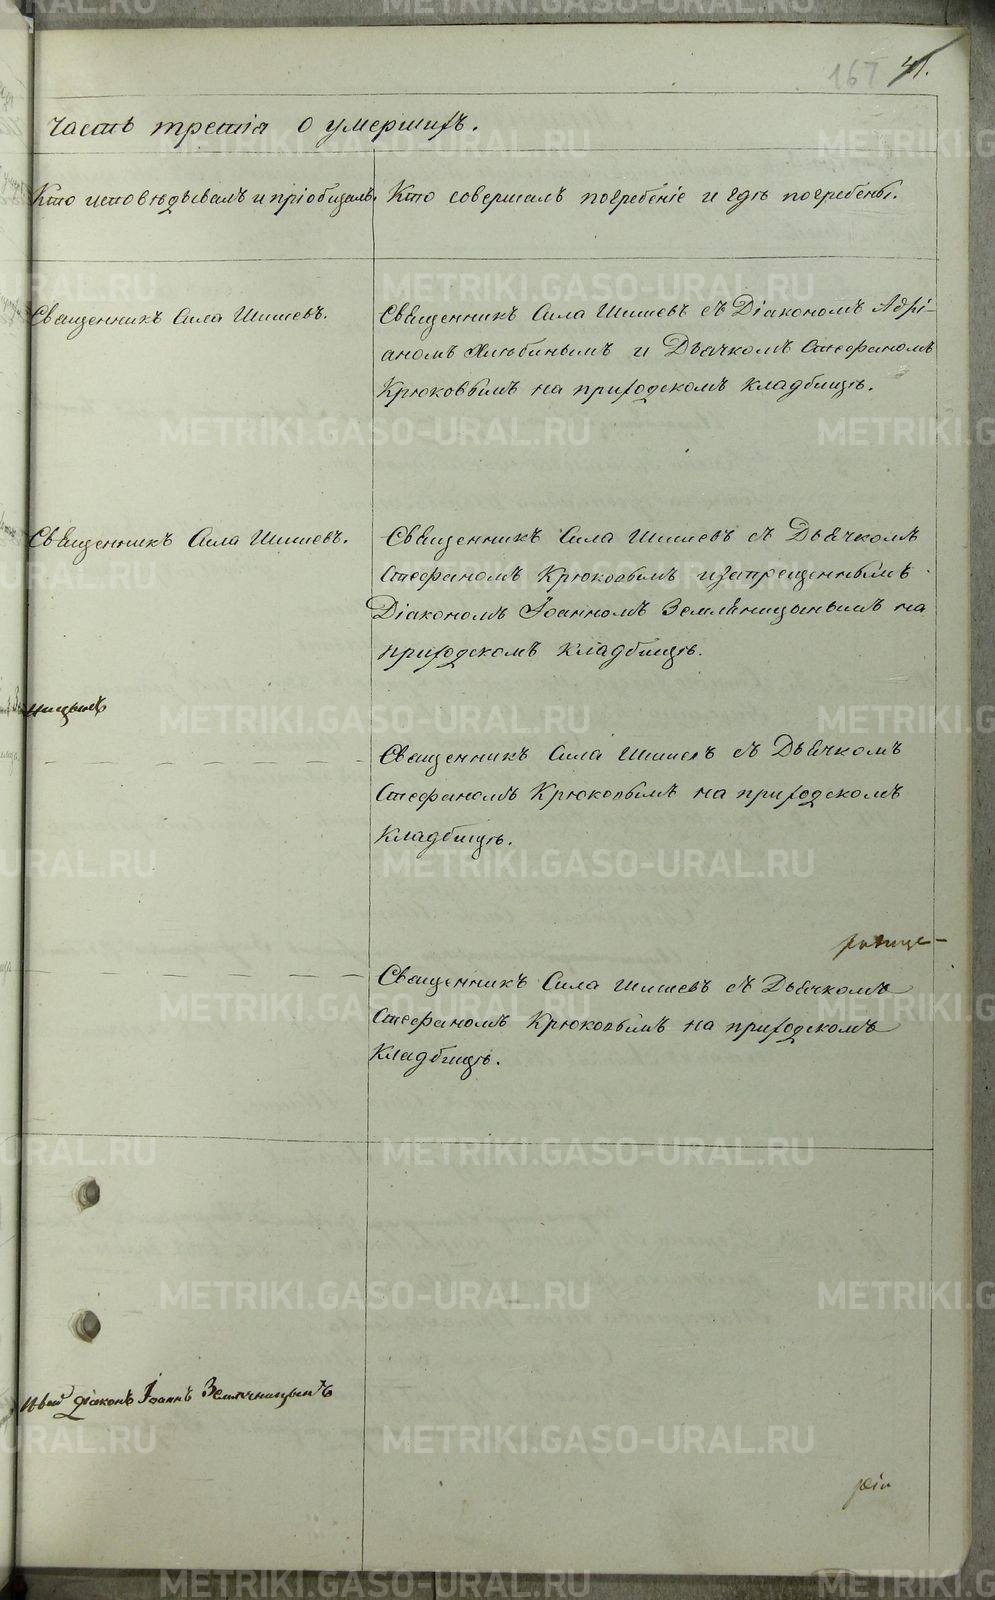 167 41.
Часть третія о умершихъ.
Кто исповѣдывалъ и пріобщалъ.
Кто совершалъ погребеніе и гдѣ погребены.
Священникъ Сила Шишевъ.
Священникъ Сила Шишевъ съ Діакономъ Адрі-
аномъ Хлыбинымъ и Дьячкомъ Стефаномъ
Крюковымъ на приходскомъ кладбищѣ.
Священникъ Сила Шишевъ.
Священникъ Сила Шишевъ съ Дьячкомъ
Стефаномъ Крюковымъ и запрещеннымъ
Діакономъ Іоанномъ Земляницынымъ на
приходскомъ кладбищѣ.
ницынъ
Священникъ Сила Шишевъ съ Дьячкомъ
Стефаномъ Крюковымъ на приходскомъ
кладбищѣ.
Священникъ Сила Шишевъ съ Дьячкомъ
Стефаномъ Крюковымъ на приходскомъ
кладбищѣ.
діаконъ Іоаннъ Земляницынъ
METRIKI.GASO-URAL.RU